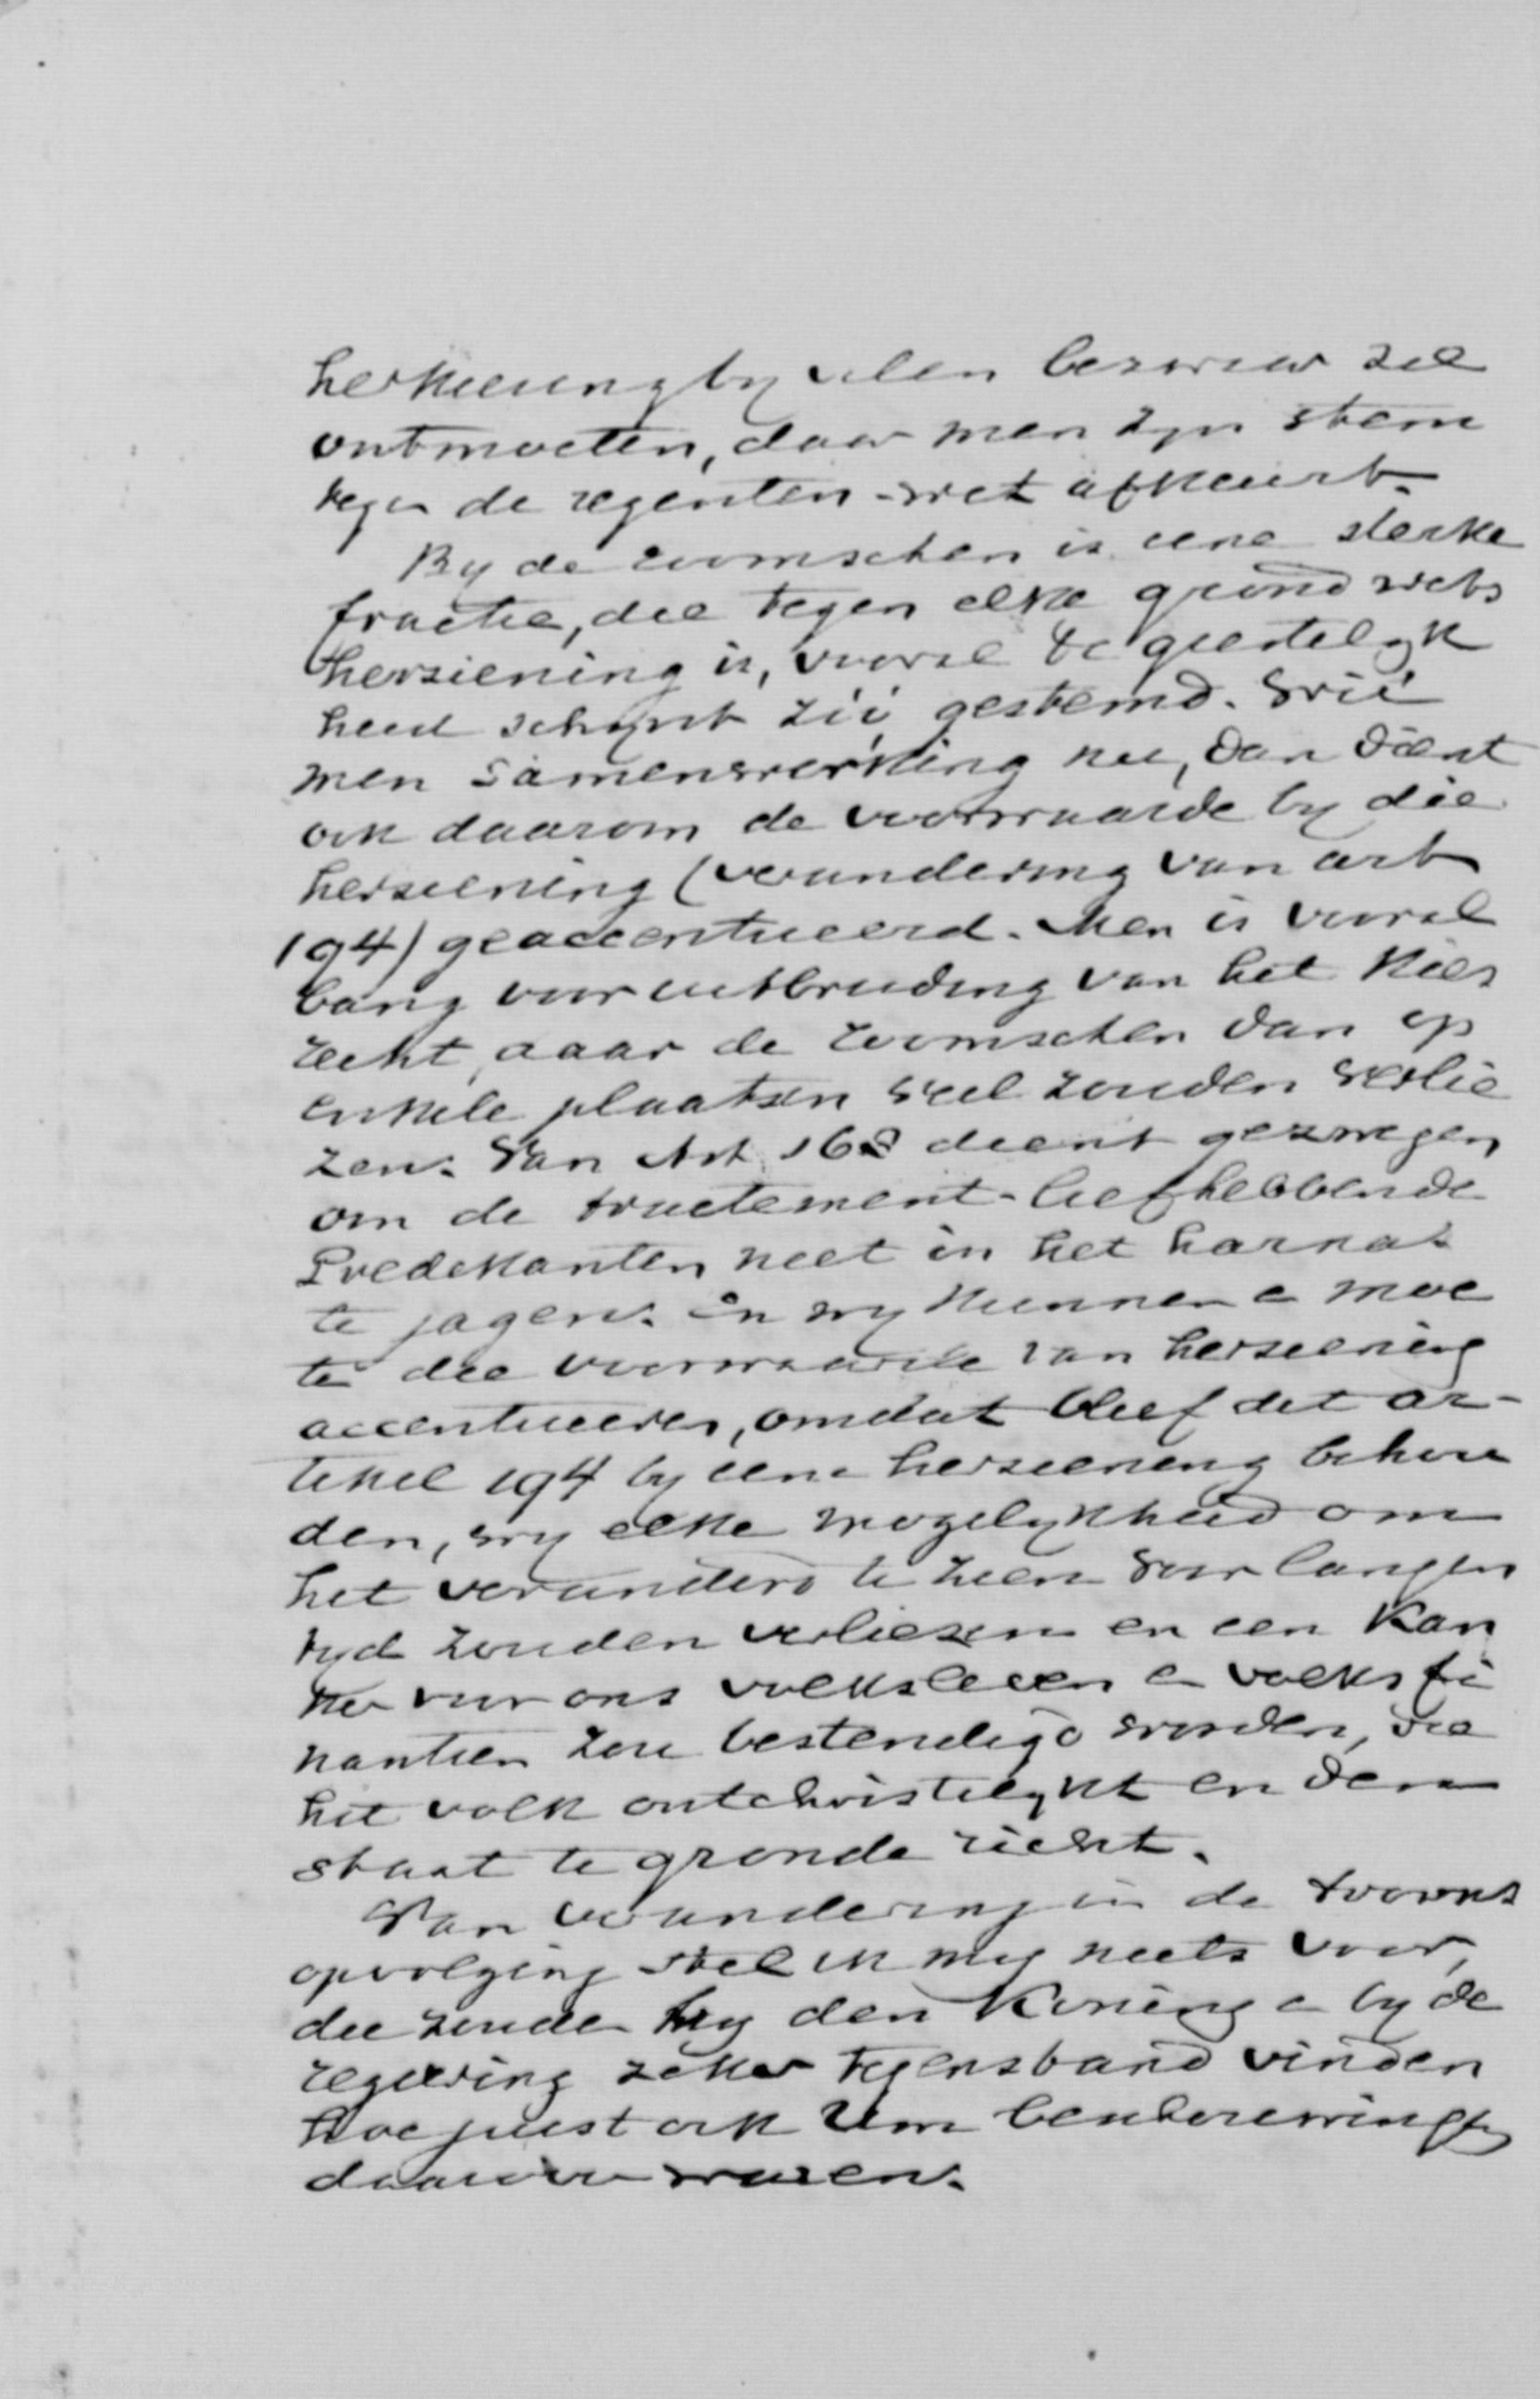 herkiezing by velen bezwaar zal
ontmoeten, daar men zyn stem
tegen de regenten-wet afkeurt.
By de roomschen is eene sterke
fractie, die tegen elke grondwets
herziening is, vooral de geestelyk
heid schynt zóó gestemd. Wil
men samenwerking nu, dan dient
ook daarom de voorwaarde by die
herziening (verandering van art
194) geaccentueerd. Men is vooral
bang voor uitbreiding van het kies
recht, daar de roomschen dan op
enkele plaatsen veel zouden verlie
zen. Van Art. 168 dient gezwegen
om de tractement-liefhebbende
Predekanten niet in het harnas
te jagen. En wy kunnen e moe
te die voorwaarde van herziening
accentueeren, omdat bleef dit ar-
tikel 194 by eene herziening behou
den, wy elke mogelykheid om
het veranderd te zien voor langen
tyd zouden verliezen en een kan
ker voor ons volksleven e volksfi
nantien zou bestendigd worden, die
het volk ontchristelykt en den
staat te gronde richt.
Van verandering in de troons
opvolging stel ik my niets voor,
die zoude by den Koning e by de
regeering zeker tegenstand vinden
hoe juist ook Uw beschouwingen
daarover waren.